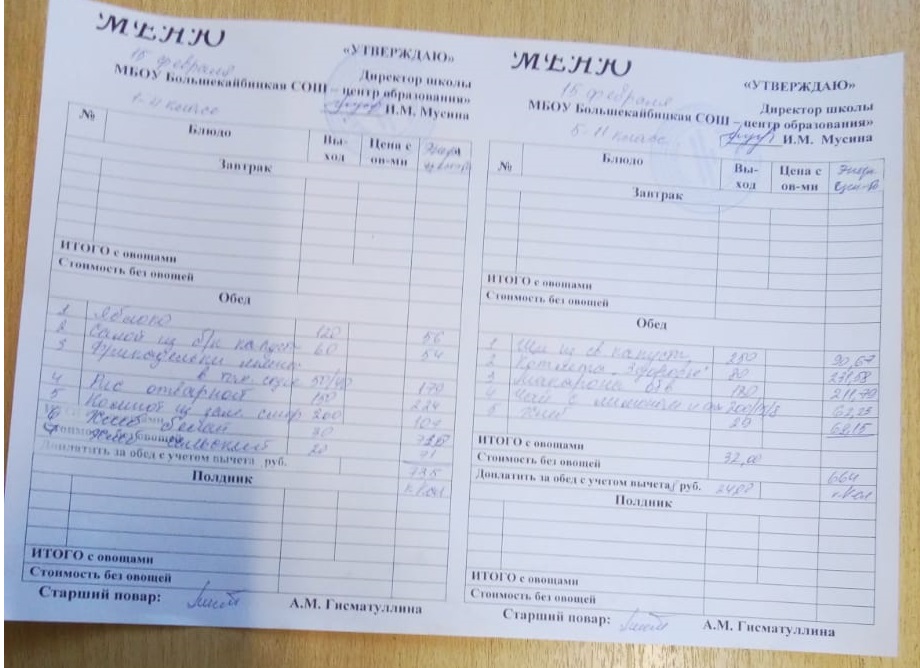 МЕНЮ
«УТВЕРЖДАЮ»
15 февраля
Директор школы
МБОУ Большекайбицкая СОШ – центр образования»
И.М. Мусина
1-4 класс
№ Блюдо Вы-ход Цена с ов-ми
Завтрак
ИТОГО с овощами
Стоимость без овощей
Обед
1 Яблоко 120 56
2 Салат из б/к капуст 60 54
3 Фрикадельки
в том. соусе 179
4 Рис отварной 150 224
5 Компот из 200 107
6 Хлеб белый 30
Хлеб сельский 20 71
Стоимость без овощей
Доплатить за обед с учетом вычета руб. 735
к.кал
Полдник
ИТОГО с овощами
Стоимость без овощей
Старший повар: А.М. Гисматуллина
МЕНЮ
«УТВЕРЖДАЮ»
15 февраля
Директор школы
МБОУ Большекайбицкая СОШ – центр образования»
И.М. Мусина
5-11 класс
№ Блюдо Вы-ход Цена с ов-ми
Завтрак
ИТОГО с овощами
Стоимость без овощей
Обед
1 Щи из св капуст 250 90,67
2 Котлета "Здоровье" 80 231,58
3 Макароны отв 180 211,79
4 Чай с лимоном
5 Хлеб 20 68,15
ИТОГО с овощами
Стоимость без овощей 32,00
Доплатить за обед с учетом вычета руб. 664
к.кал
Полдник
ИТОГО с овощами
Стоимость без овощей
Старший повар: А.М. Гисматуллина